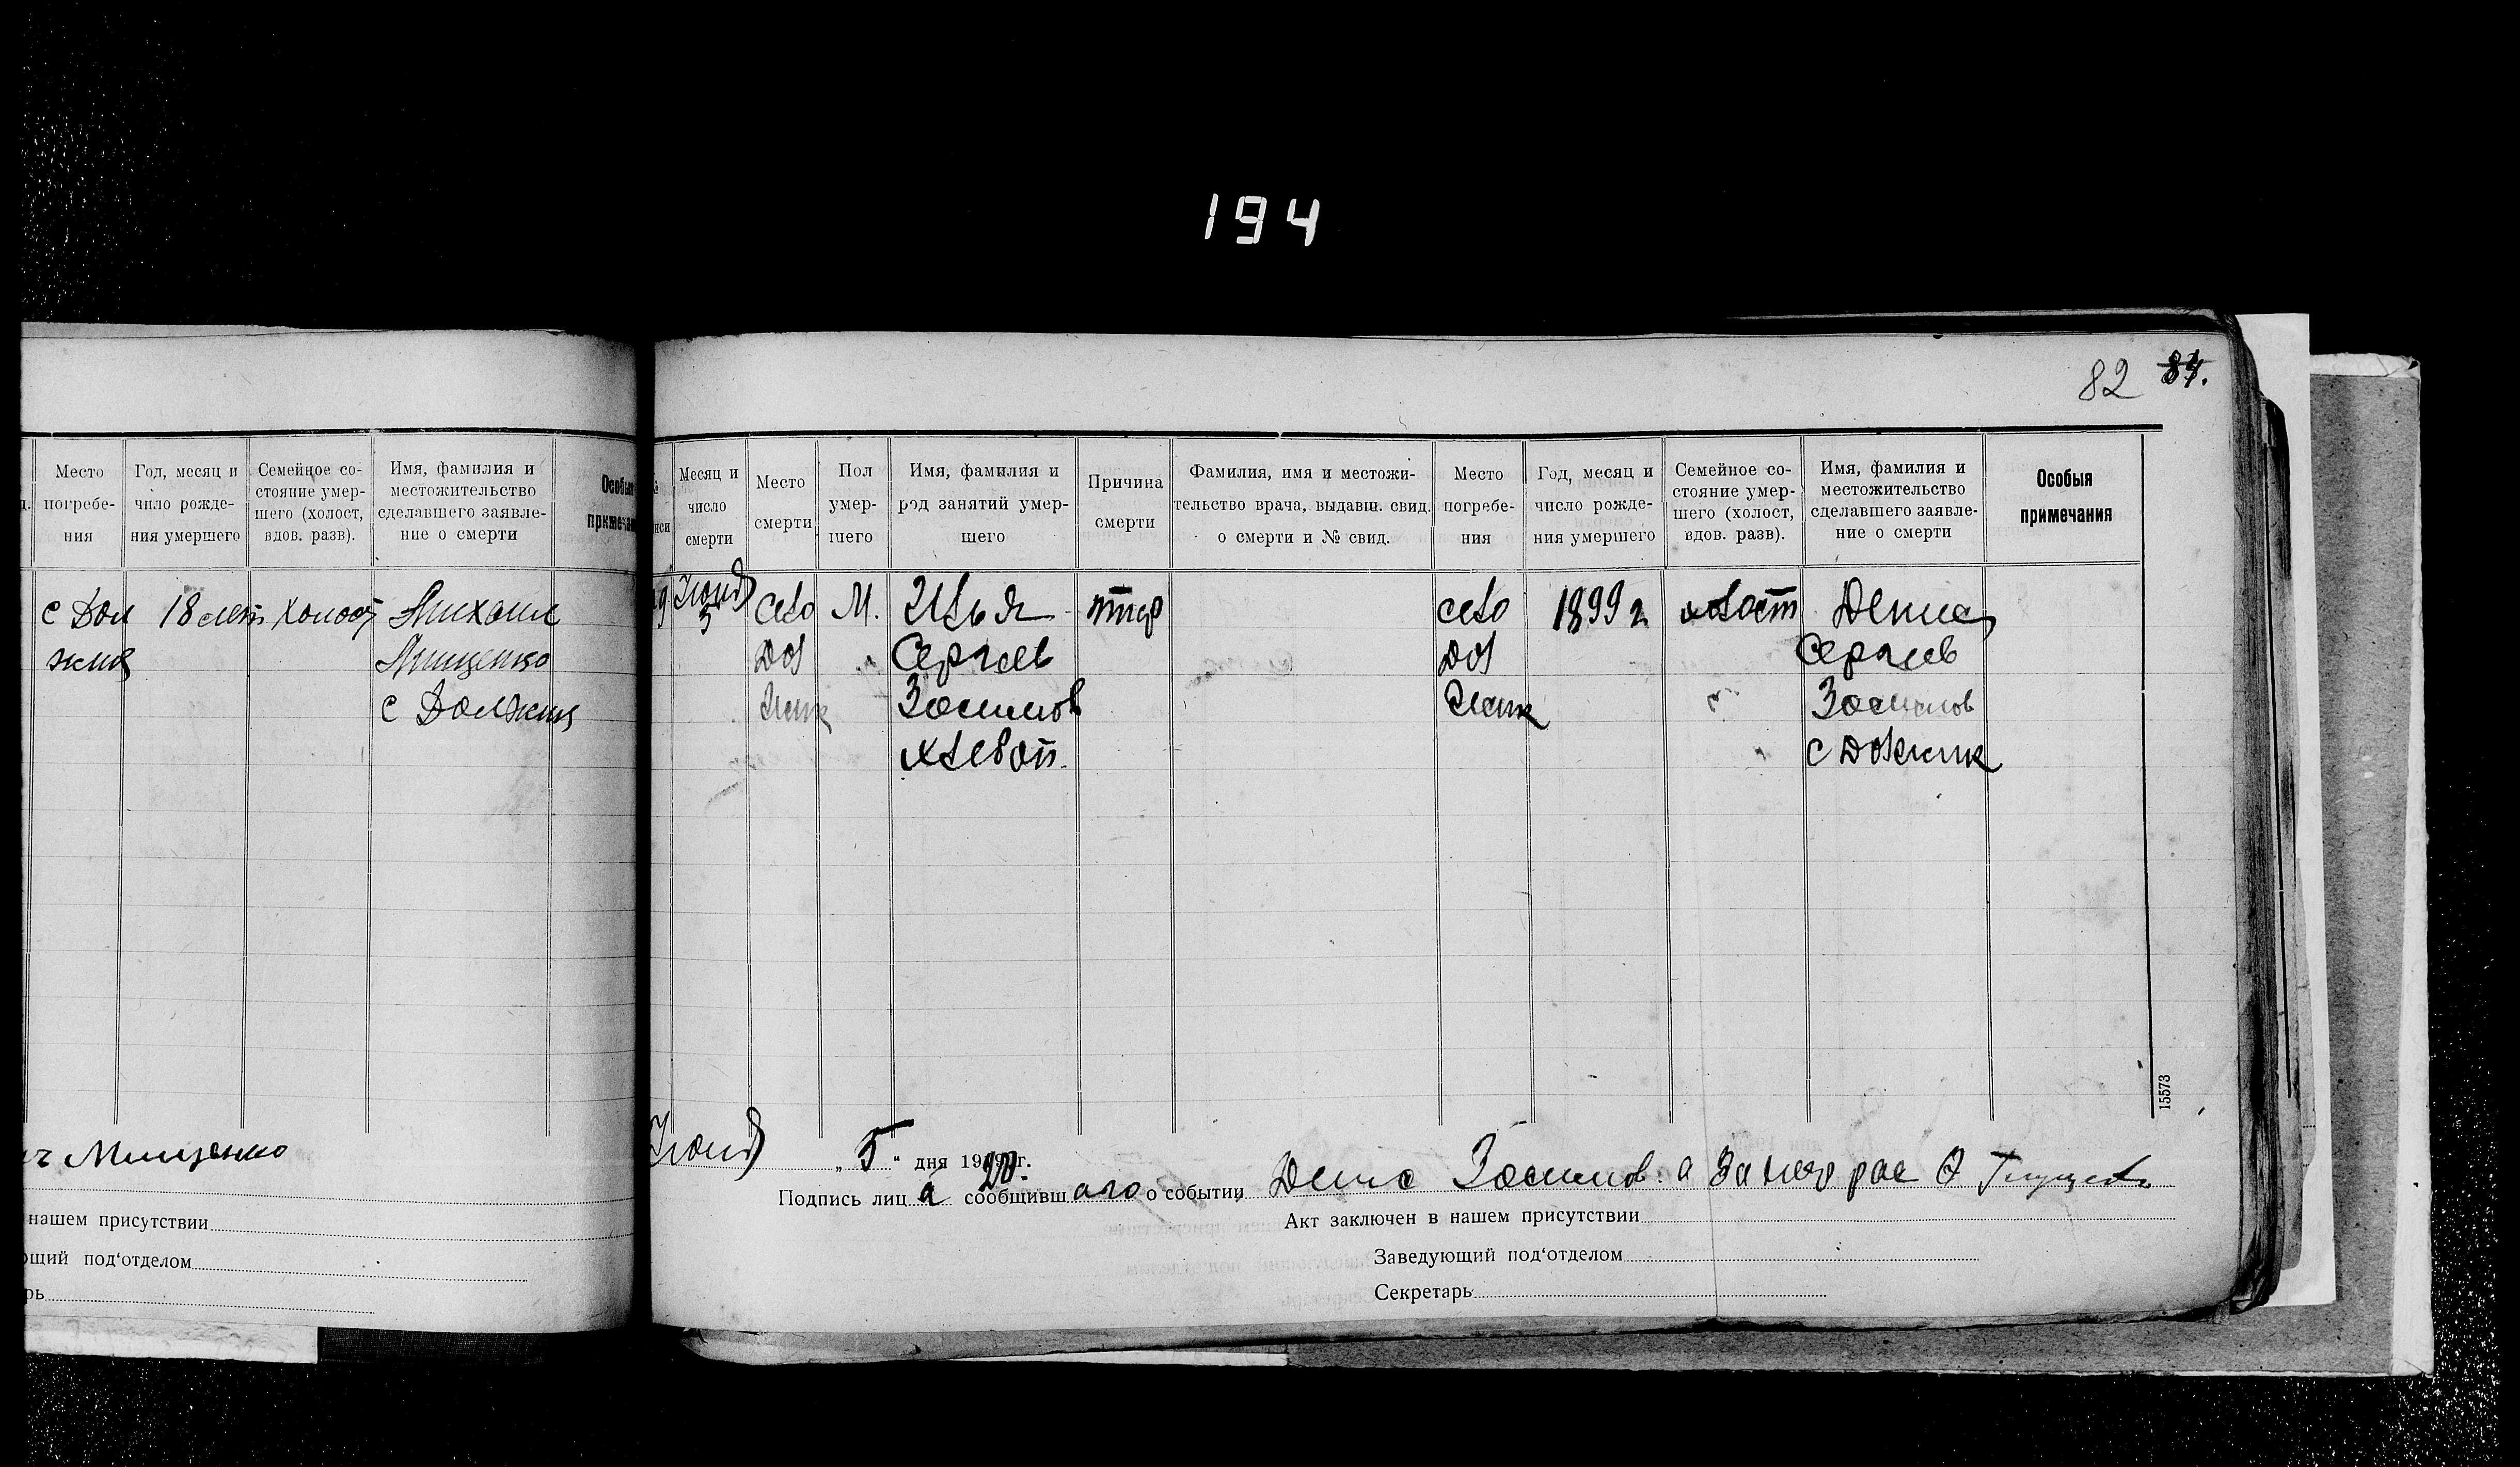 194
82 84.
Место
погребе-
ния
Год, месяц и
число рожде-
ния умершего
Семейное со-
стояние умер-
шего (холост,
вдов. разв).
Имя, фамилия и
местожительство
сделавшего заявле-
ние о смерти
Особыя
примечан
с Дол 18 лет холост Михаил
жик Мищенко
с Должик
Мищенко
нашем присутствии
ющий под'отделом
рь
Месяц и
число
смерти
Место
смерти
Пол
умер-
шего
Имя, фамилия и
род занятий умер-
шего
Причина
смерти
Фамилия, имя и местожи-
тельство врача, выдавш. свид.
о смерти и № свид.
Место
погребе-
ния
Год, месяц и
число рожде-
ния умершего
Семейное со-
стояние умер-
шего (холост,
вдов. разв).
Имя, фамилия и
местожительство
сделавшего заявле-
ние о смерти
Особыя
примечания
9 Июня село М. Илья тиф село 1899 г холост Денис
5 Дол Сергеев Дол Сергеев
жик Зосимов жик Зосимов
хлебоп. с Должик
15573
Июня „5“ дня 1920 г.
Подпись лица сообщившаго о событии Денис Зосимов. а за негр рас
Акт заключен в нашем присутствии
Заведующий под'отделом
Секретарь